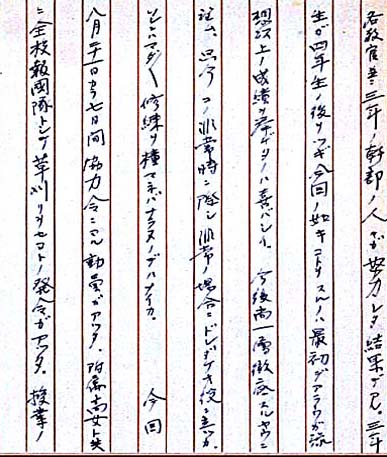 各教官並ニ三年ノ幹部ノ人ガ努力シタ結果デアル 三年
生ガ四年生ノ後ヲツギ今回ノ如キコトヲスルノハ最初デアラウガ
想以上ノ成績ヲ挙ゲタノハ喜バシイ。今後尚一層徹底スルヤウニ
只今コノ非常時ニ際シ非常ノ場合ニドレダケ役ニ立ツカ
修練ヲ積マネバナラヌノデハナイカ。 今回
八月二十一日カラ七日間協力令ニヨル動員ガアツタ。附係高女ト共
ニ全校報國隊トシテ草刈リヲセヨトノ発令ガアツタ。授業ノ